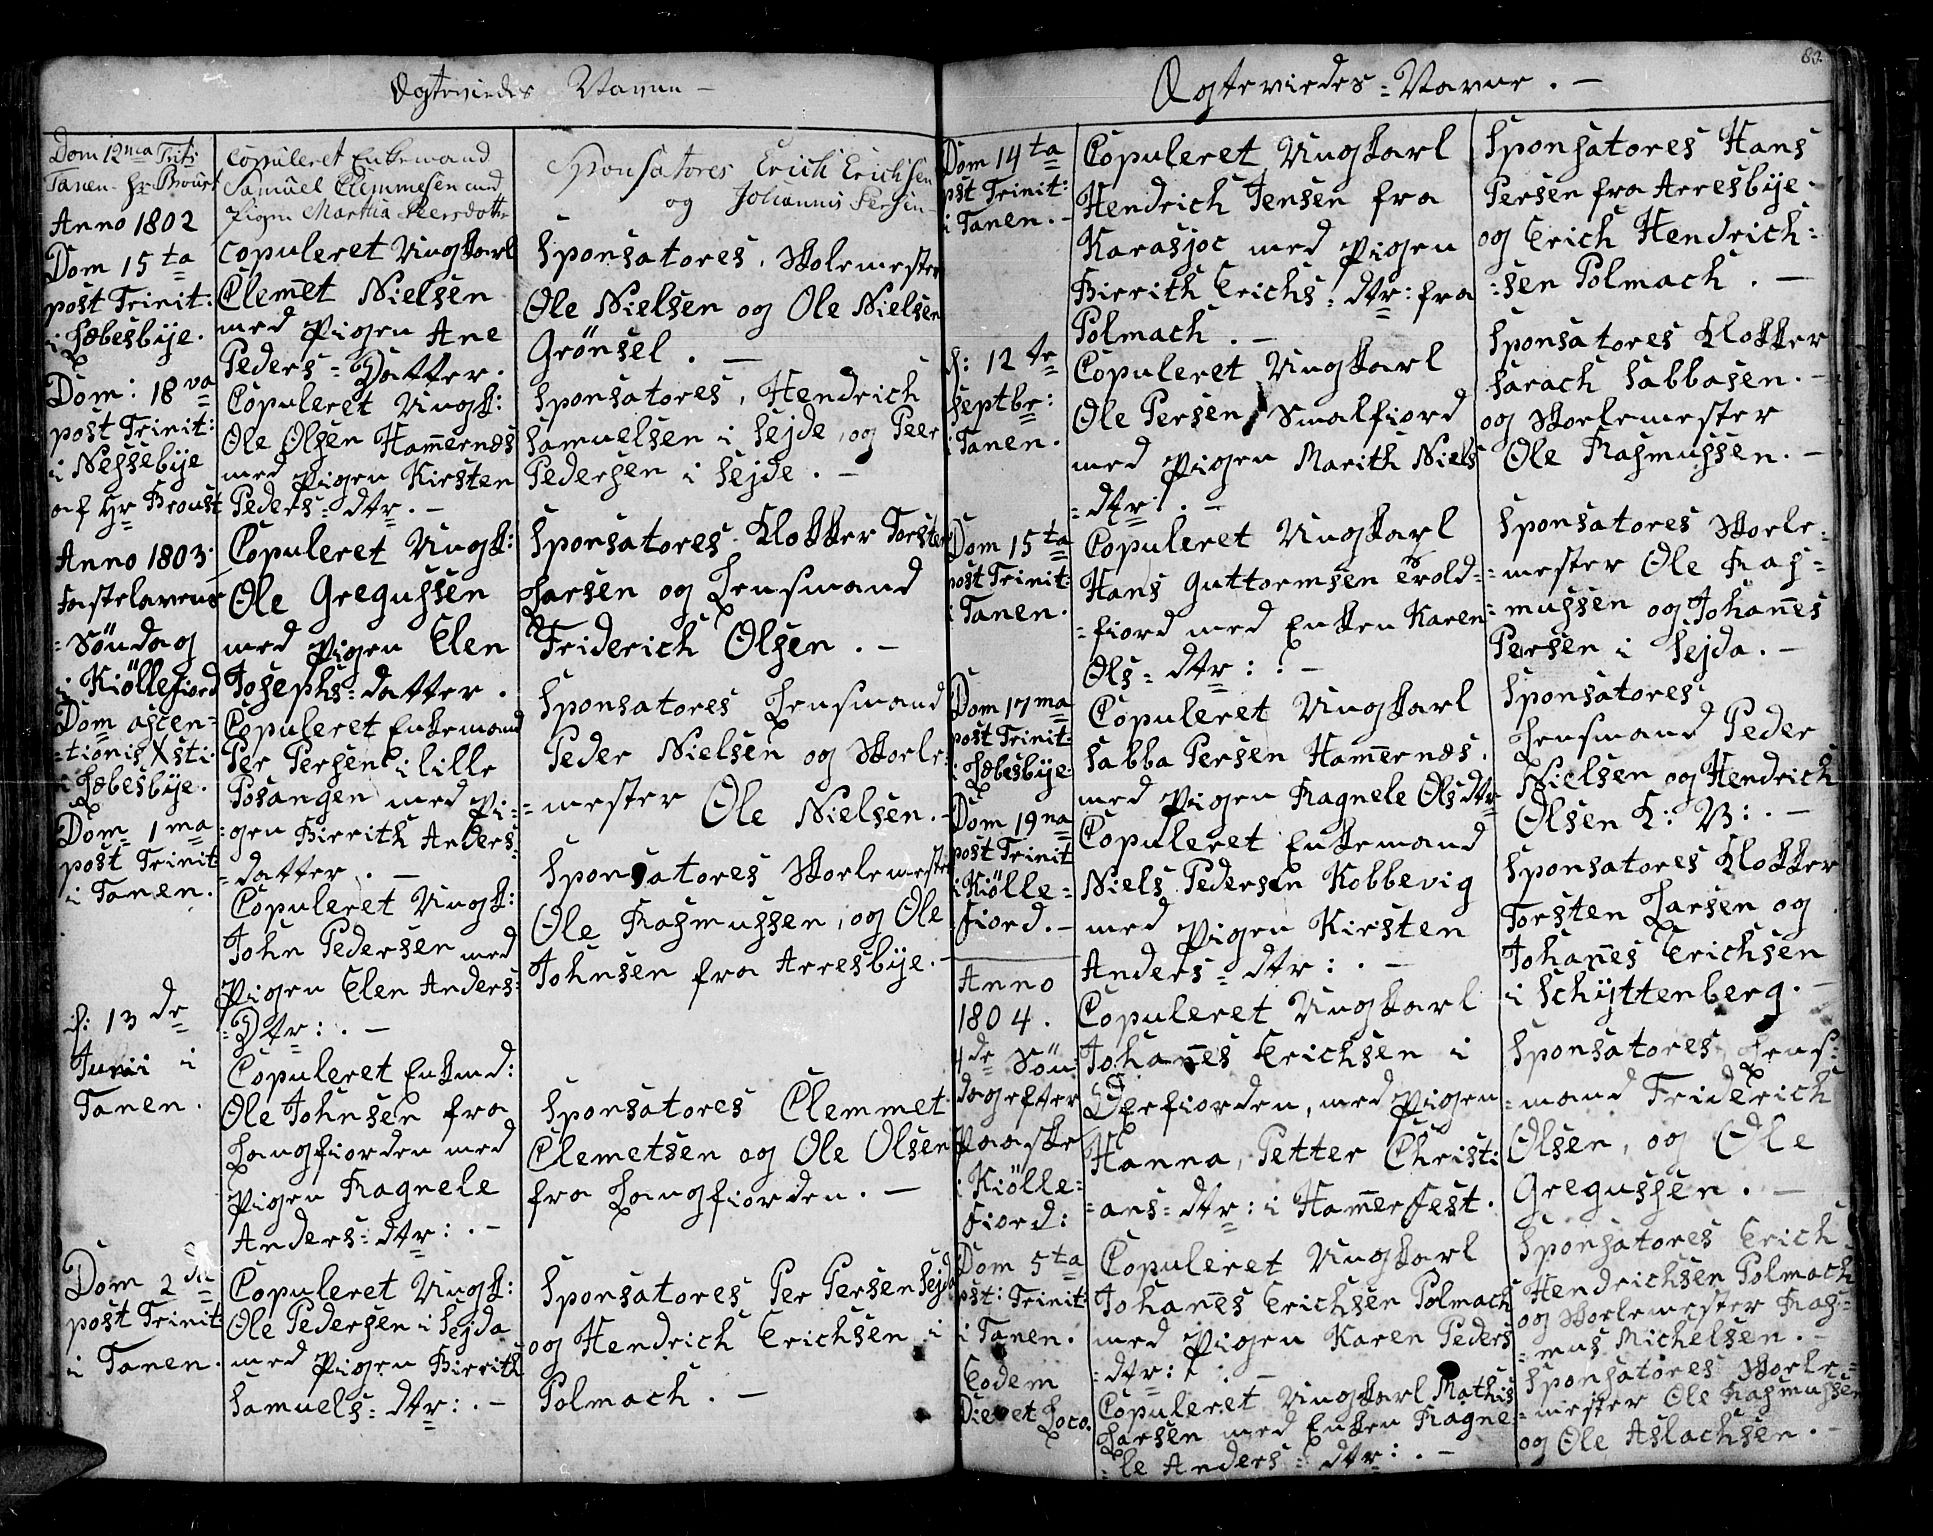 Ægteviedes Navne –
Dom 12ma Trit:
Tanen. Hr Broust
Copuleret Enkemand
Samuel Clemmesen med
Pigen Marthia Peersdotter
Sponsatores Erich Erichsen
og Johannis Persen
Anno 1802
Dom 15ta
post Trinit:
i Læbesbÿe.
Copuleret Ungkarl
Clemet Nielsen
med Pigen Ane
Peders=Datter.
Sponsatores. Skolemester
Ole Nielsen og Ole Nielsen
Grönsel. –
Dom: 18va
post Trinit:
i Nessebÿe
af Hr Broust
Copuleret Ungk:
Ole Olsen Hamernæs
med Pigen Kirsten
Peders=dtr. –
Sponsatores, Hendrich
Samuelsen i Sejde, og Peer
Pedersen i Sejde. –
Anno 1803.
Fastelavens
=Söndag
i Kiöllefiord
Copuleret Ungk:
Ole Gregussen
med Pigen Elen
Josephs=datter.
Sponsatores. Klokker Torsten
Larsen og Lensmand
Friderich Olsen. –
Dom ascen=
=tionis Xsti.
i Læbesbÿe.
Copuleret Enkemand
Per Persen i lille
Posangen med Pi=
=gen Birrith Anders=
=datter. –
Sponsatores Lensmand
Peder Nielsen og Skole=
=mester Ole Nielsen. –
Dom 1ma
post Trinit:
i Tanen.
Copuleret Ungk:
John Pedersen med
Pigen Elen Anders=
=Dtr: . –
Sponsatores Skolemester
Ole Rasmussen, og Ole
Johnsen fra Arresbÿe. –
d: 13de
Junii i
Tanen.
Copuleret Enkmd:
Ole Johnsen fra
Langfiorden med
Pigen Ragnele
Anders=dtr: . –
Sponsatores Clemmet
Clemetsen og Ole Olsen
fra Langfiorden. –
Dom 2da
post Trinit:
i Tanen.
Copuleret Ungk:
Ole Pedersen i Sejda
med Pigen Birrith
Samuels=dtr: . –
Sponsatores Per Persen Sejda
og Hendrich Erichsen i
Polmach. –
82.
Ægteviedes=Navne. –
Dom 14ta
post Trinit:
i Tanen. –
Copuleret Ungkarl
Hendrich Jensen fra
Karasjoc med Pigen
Birrith Erichs=dtr: fra
Polmach. –
Sponsatores Hans
Persen fra Arresbÿe.
og Erich Hendrich=
=sen Polmach. –
d: 12te
Septbr:
i Tanen.
Copuleret Ungkarl
Ole Persen Smalfiord
med Pigen Marith Niels
=dtr: . –
Sponsatores Klokker
Sarach Sabbasen. –
og Skolemester
Ole Rasmussen. –
Dom 15ta
post Trinit:
i Tanen.
Copuleret Ungkarl
Hans Guttormsen Trold=
=fiord med Enken Karen
Ols=dtr: . –
Sponsatores Skole=
=mester Ole Ras=
=mussen og Johanes
Persen i Sejda. –
Dom 17ma
post Trinit:
i Læbesbÿe.
Copuleret Ungkarl
Sabba Persen Hamernæs.
med Pigen Ragnele Ols dtr
Sponsatores
Lensmand Peder
Nielsen og Hendrich
Olsen L: B: . –
Dom 19na
post Trinit
i Kiölle=
fiord. –
Copuleret Enkemand
Niels Pedersen Kobbevig
med Pigen Kirsten
Anders=dtr: . –
Sponsatores Klokker
Torsten Larsen og
Johanes Erichsen
i Schÿttenberg. –
Anno
1804.
4de Sön=
dag efter
Paaske
i Kiölle=
fiord:
Copuleret Ungkarl
Johanes Erichsen i
Øefiorden, med Pigen
Hanna, Petter Christi
=ans=dtr: i Hamerfest.
Sponsatores, Lens=
=mand Friderich
Olsen, og Ole
Gregussen. –
Dom 5ta
pst: Trinit:
i Tanen.
Copuleret Ungkarl
Johanes Erichsen Polmach
med Pigen Karen Peders
=dtr: . –
Sponsatores Erich
Hendrichsen Polmach
og Skolemester Ras=
=mus Michelsen. –
Eodem
Die et Loco.
Copuleret Ungkarl Mathis
Larsen med Enken Ragne=
=le Anders=dtr: . –
Sponsatores Skole=
=mester Ole Rasmussen
og Ole Aslachsen. –